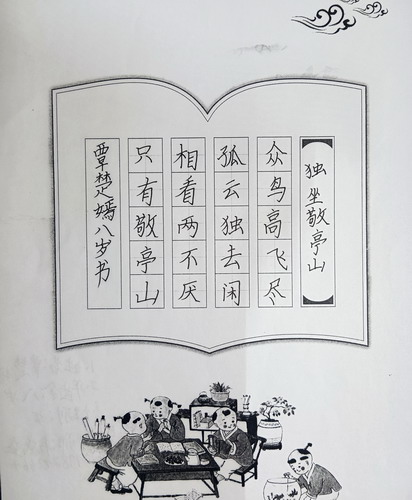 独坐敬亭山
众鸟高飞尽
孤云独去闲
相看两不厌
只有敬亭山
覃楚嫣八岁书